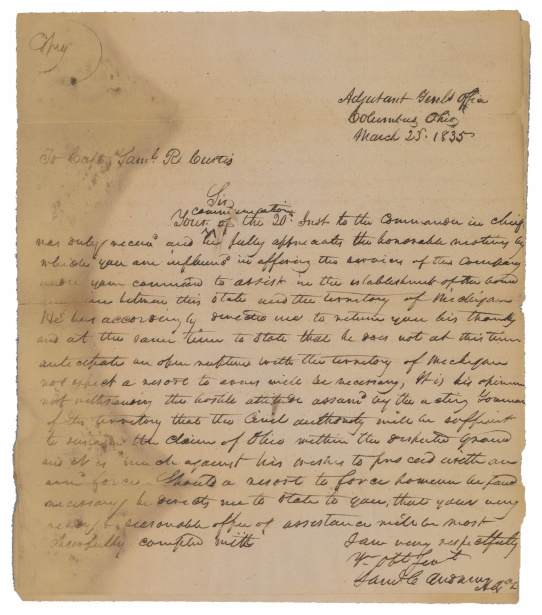 Copy
Adjutant Genls Office
Columbus Ohio
March 25. 1835
To Capt. Saml. R Curtis
Sir
communication
Your of the 20th Inst to the Commander in chief
was duly and he fully appreciates the honorable motives by
which you are influencd in offering the services of the Company
under your command to assist in the establishment of the boundary
line between this State and the territory of Michigan
He has accordingly directed me to return you his thanks
and at the same time to State that he does not at this time
anticipate an open rupture with the territory of Michigan
nor expect a resort to arms will be necessary, It is his opinion
not withstanding the hostile attitude assumd by the acting Governor
of the territory that the Civil authority will be sufficient
to sustain the claim of Ohio within the disputed ground
and it is much against his wishes to proceed with an
armd force. Should a resort to force however be found
necessary he directs me to State to you, that your very
ready & seasonable offer of assistance will be most
cheerfully complied with
I am very respectfully
Yr obt Servt
Saml C Andrews